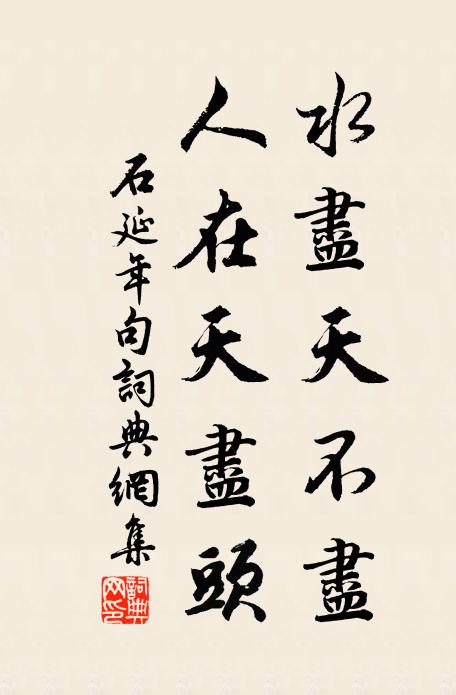 水盡天不盡
人在天盡頭
石延年句詞典網集
詞典
网印